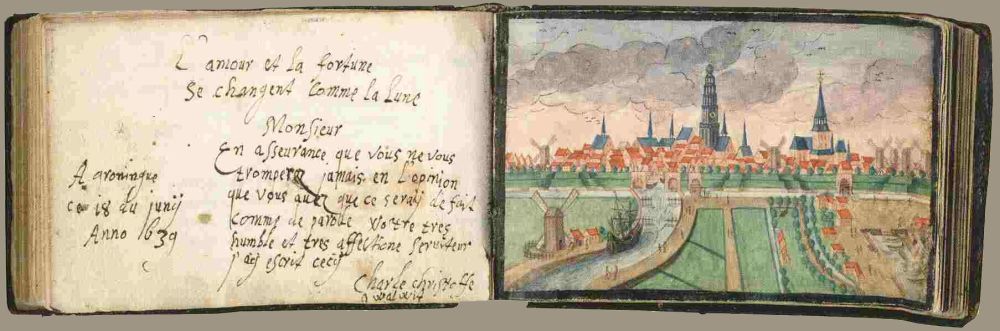 L'amour et la fortune
Se changent comme la Lune
Monsieur
En asseurance que vous ne vous
tromperez jamais en l'opinion
que vous avez que ce seray de fait
comme de parolle Votre tres
humble et tres affectione serviteur
j'ay escrit cecy
Charle christoffe
A groningue
ce 18 du junij
Anno 1639